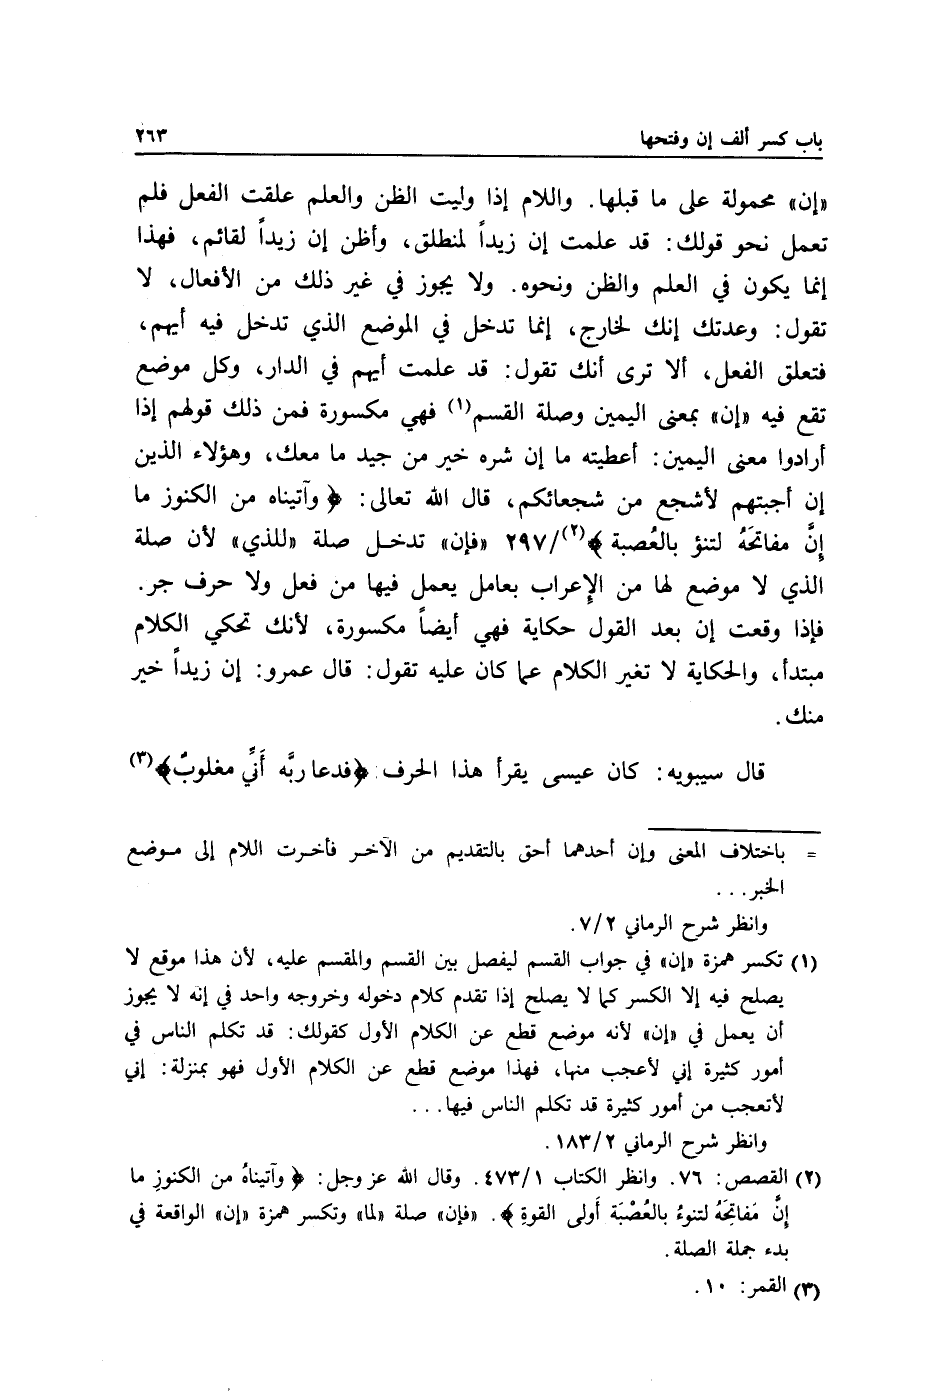 باب كسر ألف إن وفتحها ٢٦٣
«إن» محمولة على ما قبلها. واللام إذا وليت الظن والعلم علقت الفعل فلم
تعمل نحو قولك: قد علمت إن زيداً لمنطلق، وأظن إن زيداً لقائم، فهذا
إنما يكون في العلم والظن ونحوه. ولا يجوز في غير ذلك من الأفعال، لا
تقول: وعدتك إنك لخارج، إنما تدخل في الموضع الذي تدخل فيه أيهم،
فتعلق الفعل، ألا ترى أنك تقول: قد علمت أيهم في الدار، وكل موضع
تقع فيه «إن» بمعنى اليمين وصلة القسم(١) فهي مكسورة فمن ذلك قولهم إذا
أرادوا معنى اليمين: أعطيته ما إن شره خير من جيد ما معك، وهؤلاء الذين
إن أجبتهم لأشجع من شجعائكم، قال الله تعالى: ﴿وآتيناه من الكنوز ما
إنَّ مفاتحَهُ لتنؤ بالعُصبة﴾(٢)/٢٩٧ «فإن» تدخل صلة «للذي» لأن صلة
الذي لا موضع لها من الإعراب بعامل يعمل فيها من فعل ولا حرف جر.
فإذا وقعت إن بعد القول حكاية فهي أيضاً مكسورة، لأنك تحكي الكلام
مبتدأ، والحكاية لا تغير الكلام عما كان عليه تقول: قال عمرو: إن زيداً خير
منك.
قال سيبويه: كان عيسى يقرأ هذا الحرف: ﴿فدعا ربَّه أَنيِّ مغلوبٌ﴾(٣)
= باختلاف المعنى وإن أحدهما أحق بالتقديم من الآخر فأخرت اللام إلى موضع
الخبر...
وانظر شرح الرماني ٧/٢.
(١) تكسر همزة «إن» في جواب القسم ليفصل بين القسم والمقسم عليه، لأن هذا موقع لا
يصلح فيه إلا الكسر كما لا يصلح إذا تقدم كلام دخوله وخروجه واحد في إنه لا يجوز
أن يعمل في «إن» لأنه موضع قطع عن الكلام الأول كقولك: قد تكلم الناس في
أمور كثيرة إني لأعجب منها، فهذا موضع قطع عن الكلام الأول فهو بمنزلة: إني
لأتعجب من أمور كثيرة قد تكلم الناس فيها...
وانظر شرح الرماني ١٨٣/٢.
(٢) القصص: ٧٦. وانظر الكتاب ٤٧٣/١. وقال الله عز وجل: ﴿وآتيناهُ من الكنوزِ ما
إنَّ مَفاتِحَهُ لتنوءُ بالعُصْبَة أَولى القوةِ﴾. «فإن» صلة «لما» وتكسر همزة «إن» الواقعة في
بدء جملة الصلة.
(٣) القمر: ١٠.